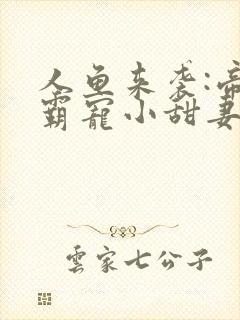 人鱼来袭:帝
霸宠小甜妻
雲家七公子